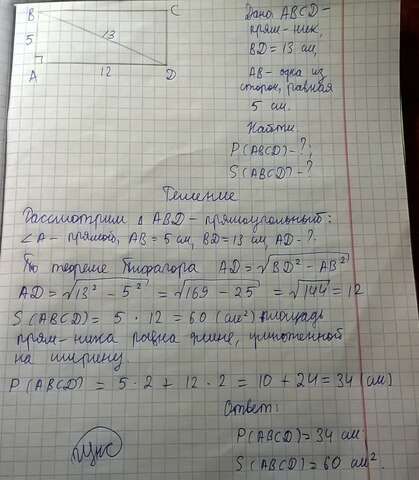 B C
5 13
A 12 D
Дано: ABCD –
прям-ник,
BD = 13 см,
AB – одна из
сторон, равная
5 см.
Найти:
P(ABCD) – ?;
S(ABCD) – ?
Решение
Рассмотрим Δ ABD – прямоугольный:
∠A – прямой, AB = 5 см, BD = 13 см, AD – ?.
По теореме Пифагора AD = √(BD² – AB²)
AD = √(13² – 5²) = √(169 – 25) = √144 = 12
S(ABCD) = 5 · 12 = 60 (см²) площадь
прям-ника равна длине, умноженной
на ширину.
P(ABCD) = 5 · 2 + 12 · 2 = 10 + 24 = 34 (см)
Ответ:
P(ABCD) = 34 см
S(ABCD) = 60 см².